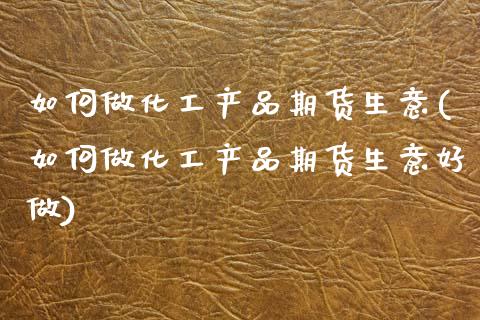 如何做化工产品期货生意(
如何做化工产品期货生意好
做)